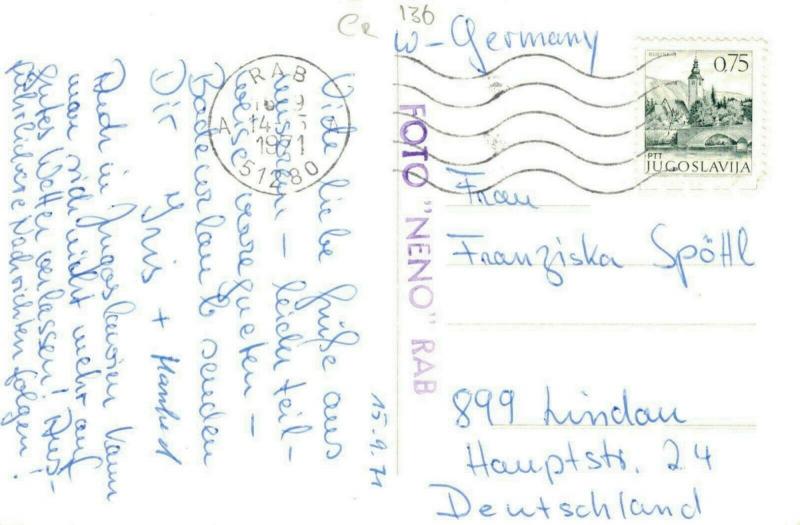 Cr 136
W-Germany
0,75
PTT
JUGOSLAVIJA
RAB
1971
51280
FOTO "NENO" RAB
15.9.71
Viele liebe Grüße aus
unserem – leicht teil-
Badeurlaub senden
Dir Iris + Manfred
Auch in Jugoslawien kann
man sich nicht mehr auf
gutes Wetter verlassen! Aus-
führlichere Nachrichten folgen!
Frau
Franziska Spöttl
899 Lindau
Hauptstr. 24
Deutschland